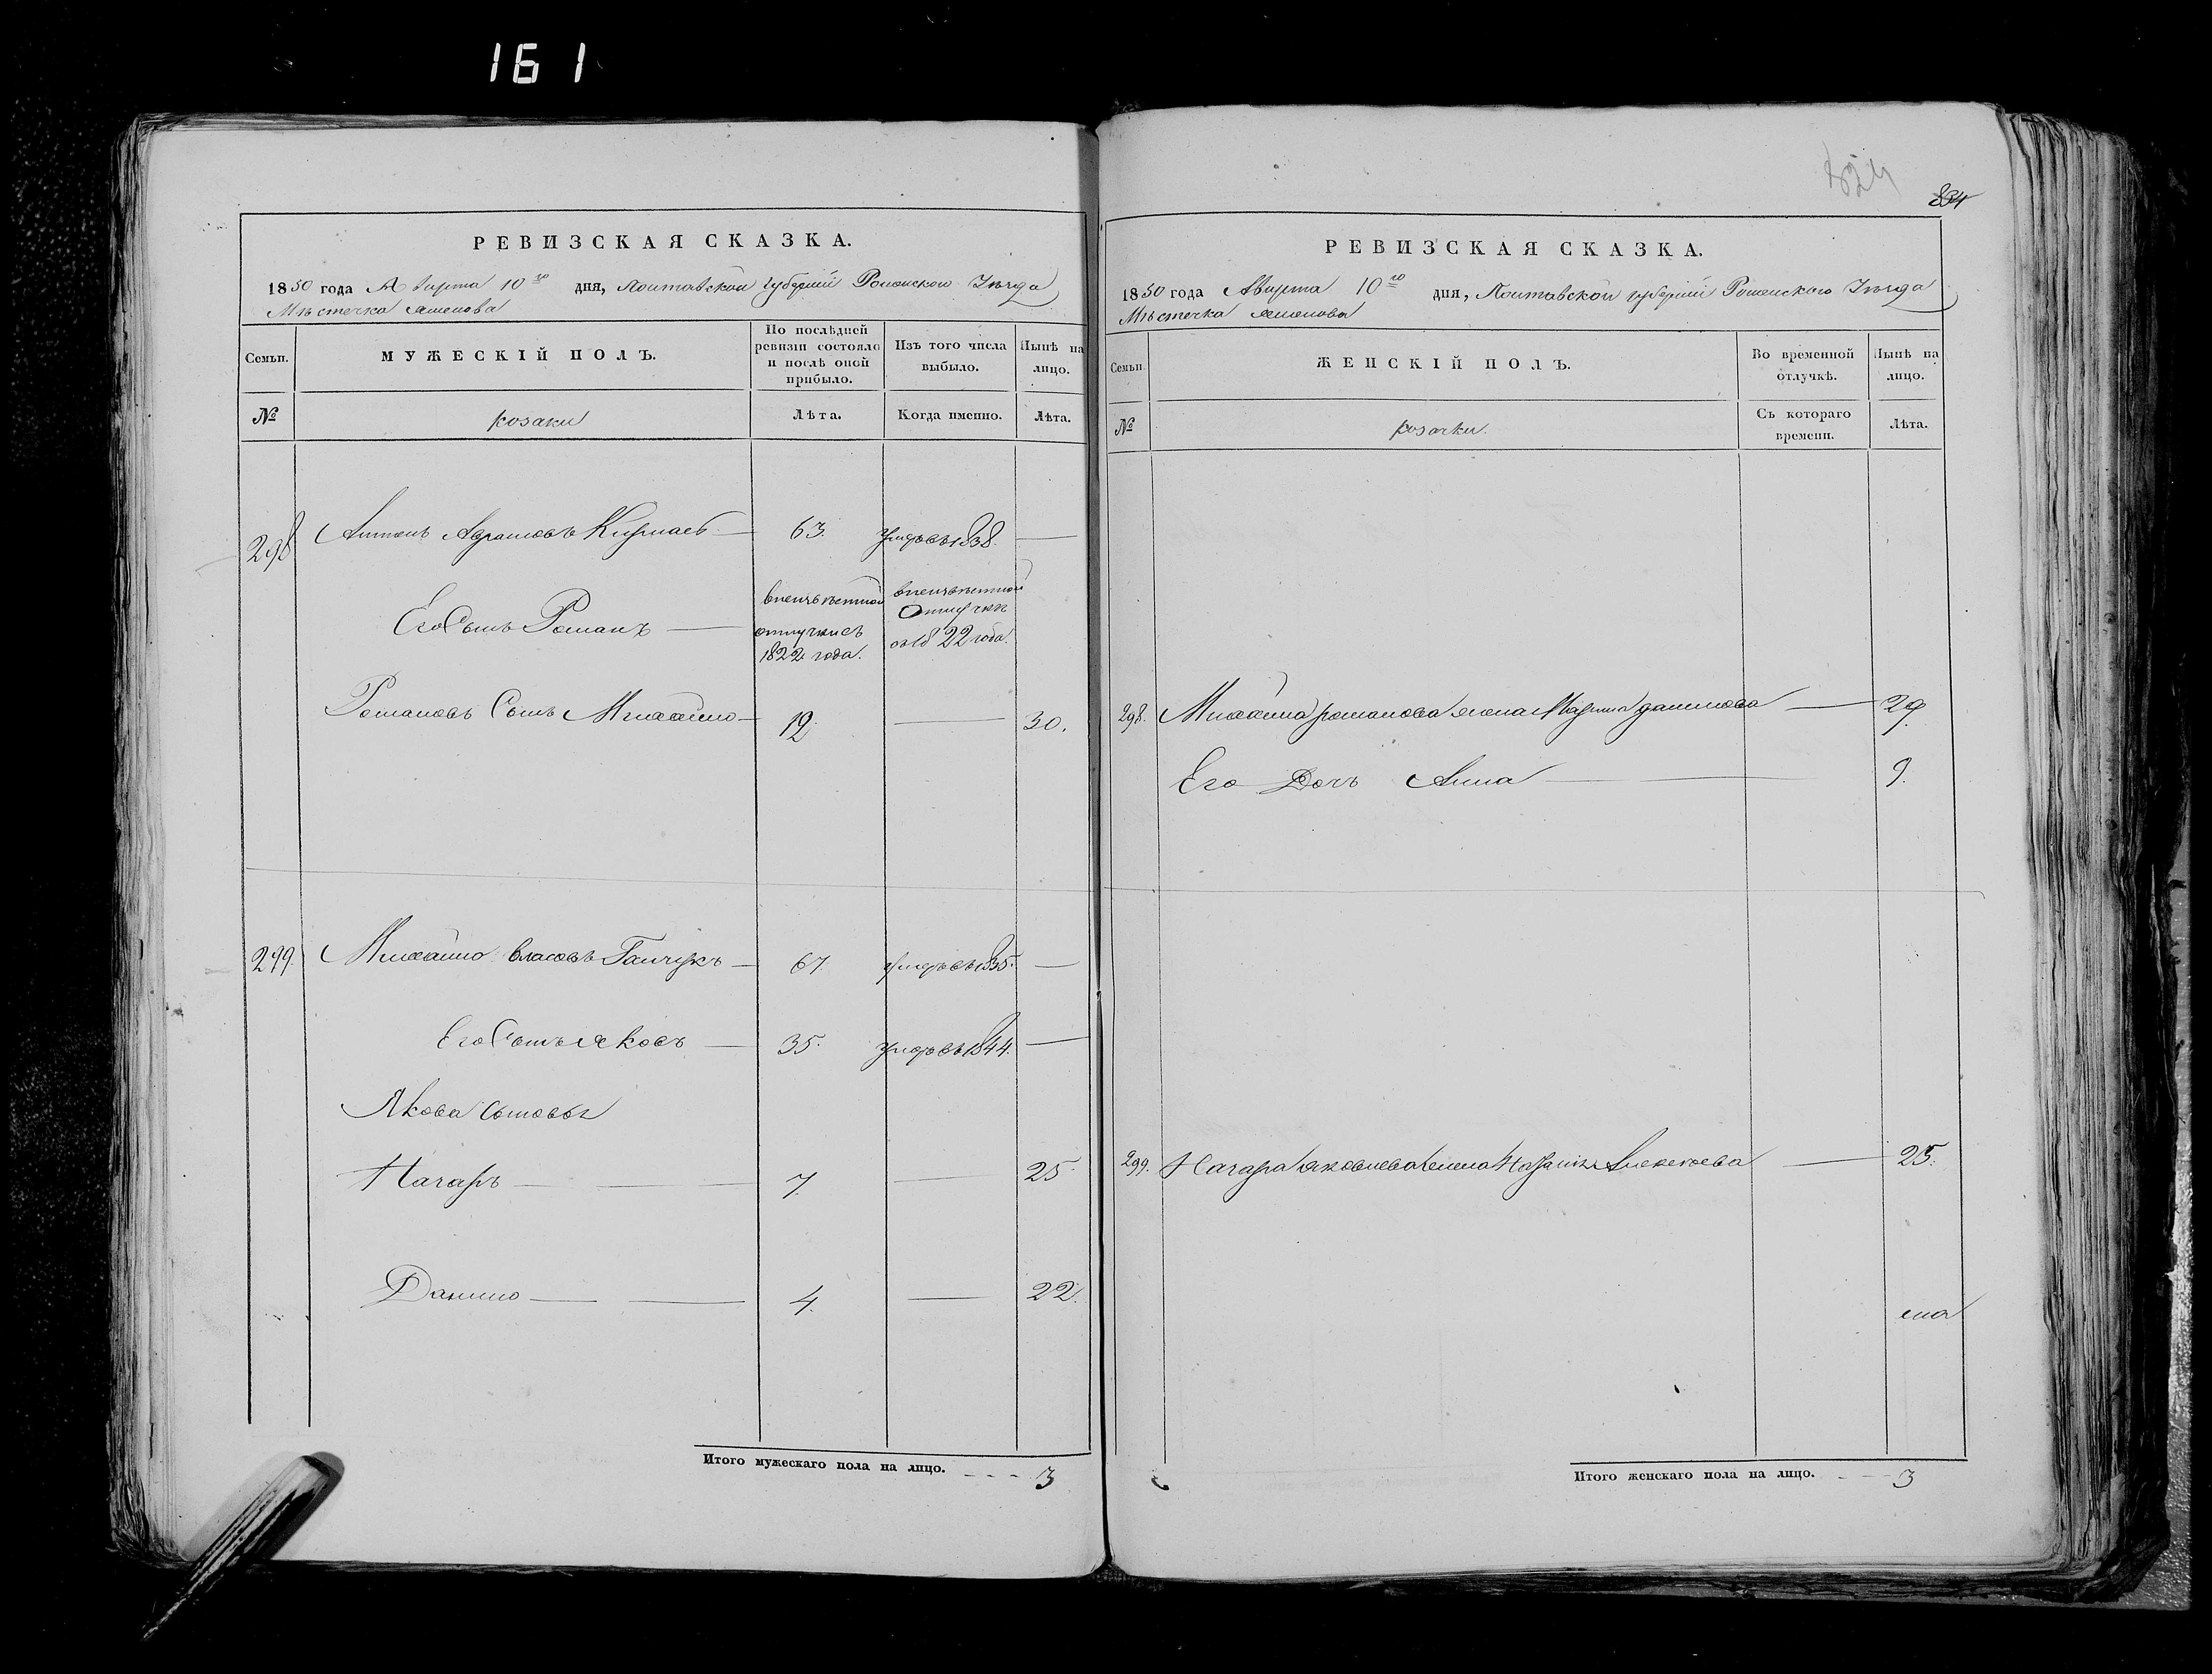 161
824
834
РЕВИЗСКАЯ СКАЗКА.
1850 года Августа 10го дня, Полтавской губернии Роменского Уезда
Местечка Смелова
Семьи. МУЖЕСКІЙ ПОЛЪ. По послѣдней ревизіи состояло и послѣ оной прибыло. Изъ того числа выбыло. Нынѣ на лицо.
№ козаки Лѣта. Когда именно. Лѣта.
298 Антонъ Абрамовъ 63. умеръ въ 1838.
Его Сынъ Романъ
отлучкѣ съ 1822 года.
отлучкѣ съ 1822 года.
Романовъ Сынъ Михайло 12. 30.
299 Михайло Власовъ Ганчукъ 67. умеръ въ 1835.
Его Сынъ Яковъ 35. умеръ въ 1844.
Якова Сыновья
Назаръ 7. 25.
Данило 4. 22.
Итого мужескаго пола на лицо. 3
РЕВИЗСКАЯ СКАЗКА.
1850 года Августа 10го дня, Полтавской губернии Роменского Уезда
Местечка Смелова
Семьи. ЖЕНСКІЙ ПОЛЪ. Во временной отлучкѣ. Нынѣ на лицо.
№ козачки. Съ котораго времени. Лѣта.
298. Михайла Романова жена Марина Данилова 29.
Его Дочь Анна 9.
299. Назара Яковлева жена Алексеева 25.
Итого женскаго пола на лицо. 3